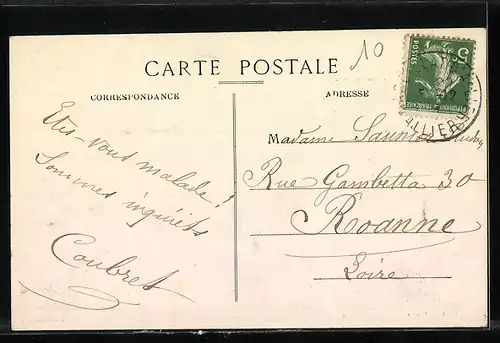 10
CARTE POSTALE
CORRESPONDANCE
ADRESSE
5c
POSTES
REPUBLIQUE FRANÇAISE
ALLIER
Êtes-vous malade !
Sommes inquiets
Coubret
Madame
Rue Gambetta 30
Roanne
Loire